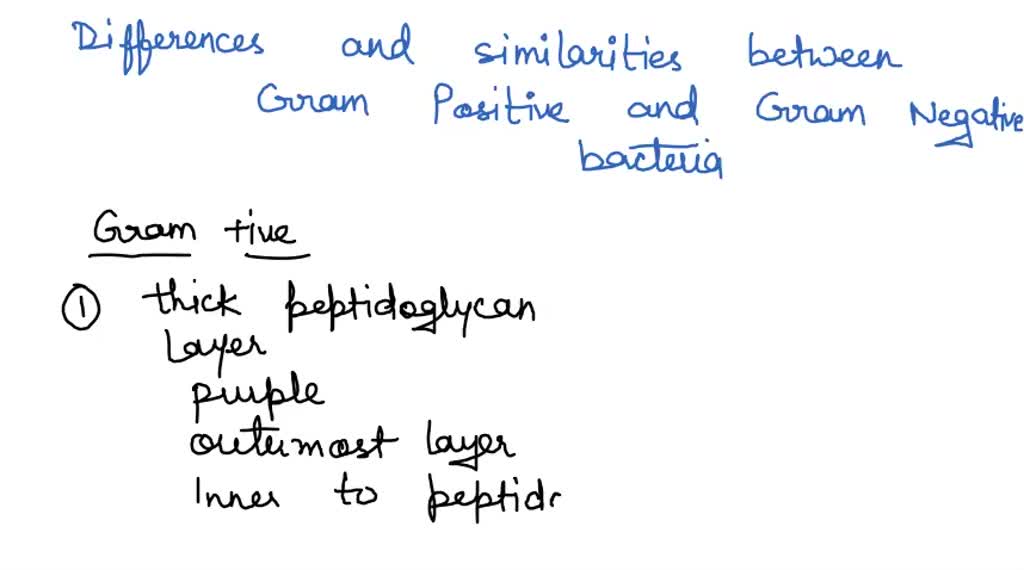 Differences and similarities between
Gram Positive and Gram Negative
bacteria
Gram +ive
① thick peptidoglycan
Layer
purple
outermost layer
Inner to peptido